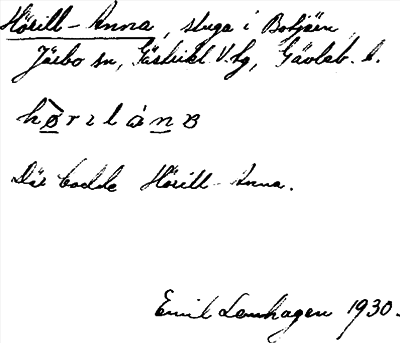 Hörill-Anna, stuga i Botjärn,
Järbo sn, Gästrikl. V. tg, Gävleb. l.
hørɪlánʙ
Där bodde Hörill-Anna.
Emil Lenhagen 1930.